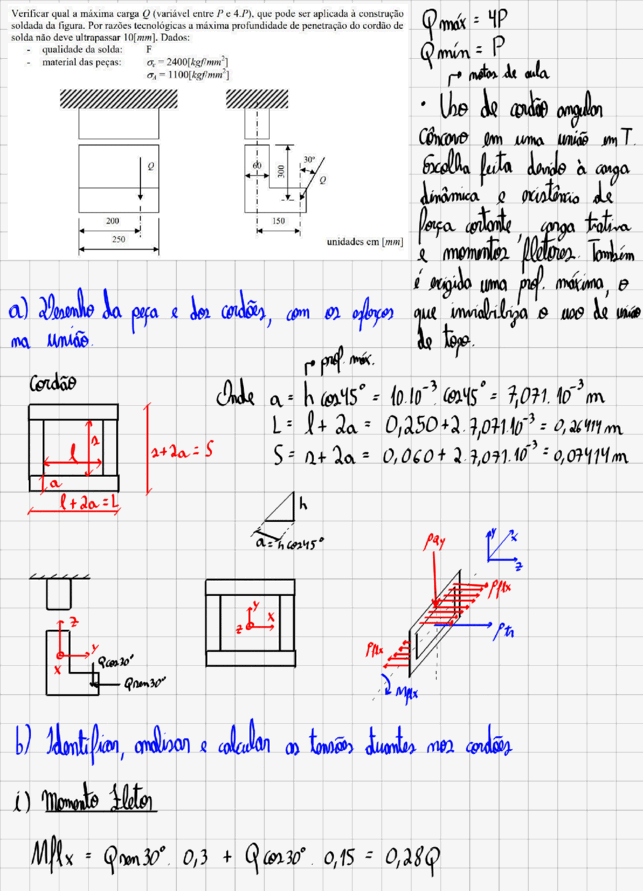 Verificar qual a máxima carga Q (variável entre P e 4.P), que pode ser aplicada à construção
soldada da figura. Por razões tecnológicas a máxima profundidade de penetração do cordão de
solda não deve ultrapassar 10[mm]. Dados:
- qualidade da solda: F
- material das peças: σe = 2400[kgf/mm²]
σA = 1100[kgf/mm²]
Q
60
300
30°
Q
200
250
150
unidades em [mm]
Qmáx = 4P
Qmín = P
↱ notas de aula
• Uso de cordão angular
côncavo em uma união em T.
Escolha feita devido à carga
dinâmica e existência de
força cortante, carga trativa
e momentos fletores. Também
é exigida uma prof. máxima, o
que inviabiliza o uso de união
de topo.
a) Desenho da peça e dos cordões, com os esforços
na união.
↱ prof. máx.
Cordão
Onde a = h cos45° = 10.10⁻³.cos45° = 7,071.10⁻³ m
L = l + 2a = 0,250 + 2.7,071.10⁻³ = 0,26414 m
S = r + 2a = 0,060 + 2.7,071.10⁻³ = 0,07414 m
r
l
a
r+2a = S
l+2a = L
h
a = h cos45°
z
y
x
Qcos30°
Qsen30°
y
x
z
Pqy
y
x
z
Pflx
Ptr
Pflx
Mflx
b) Identificar, analisar e calcular as tensões atuantes nos cordões
i) Momento Fletor
Mflx = Qsen30° . 0,3 + Qcos30° . 0,15 = 0,28Q